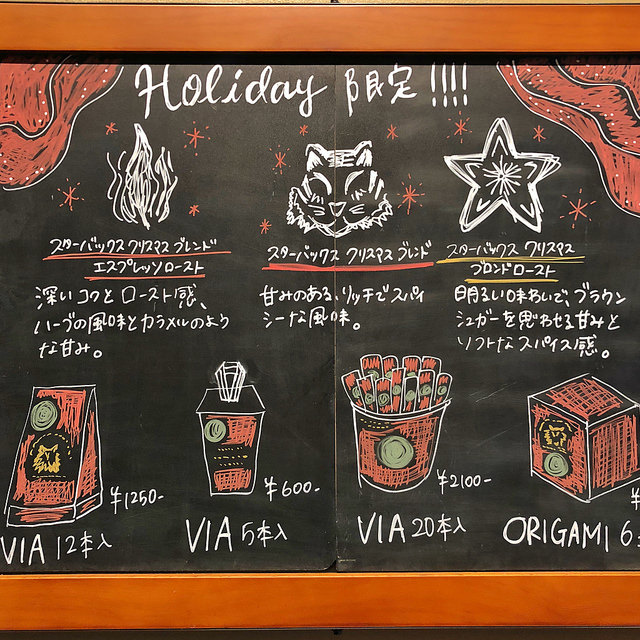 Holiday 限定!!!!
スターバックス クリスマス ブレンド
エスプレッソロースト
深いコクとロースト感、
ハーブの風味とカラメルのよう
な甘み。
スターバックス クリスマス ブレンド
甘みのある、リッチでスパイ
シーな風味。
スターバックス クリスマス
ブロンドロースト
明るい味わいで、ブラウン
シュガーを思わせる甘みと
ソフトなスパイス感。
¥1250-
VIA 12本入
¥600-
VIA 5本入
¥2100-
VIA 20本入
¥
ORIGAMI 6